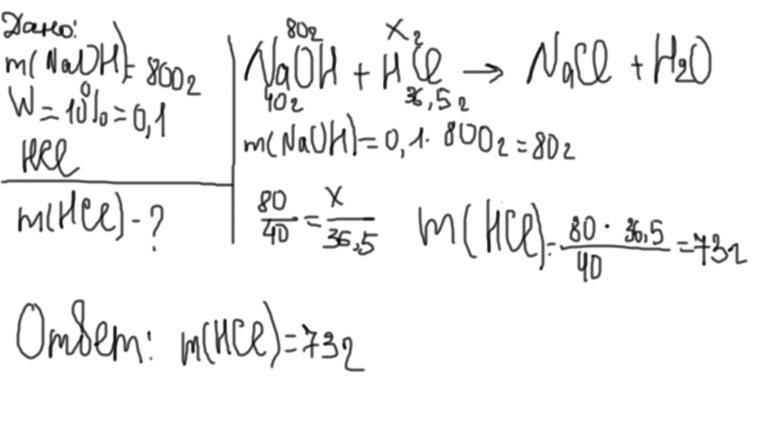 Дано:
m(NaOH)=800г
W=10%=0,1
HCl
m(HCl)-?
80г    xг
NaOH + HCl → NaCl + H2O
40г    36,5г
m(NaOH)=0,1·800г=80г
80/40 = x/36,5
m(HCl)=80·36,5/40=73г
Ответ: m(HCl)=73г